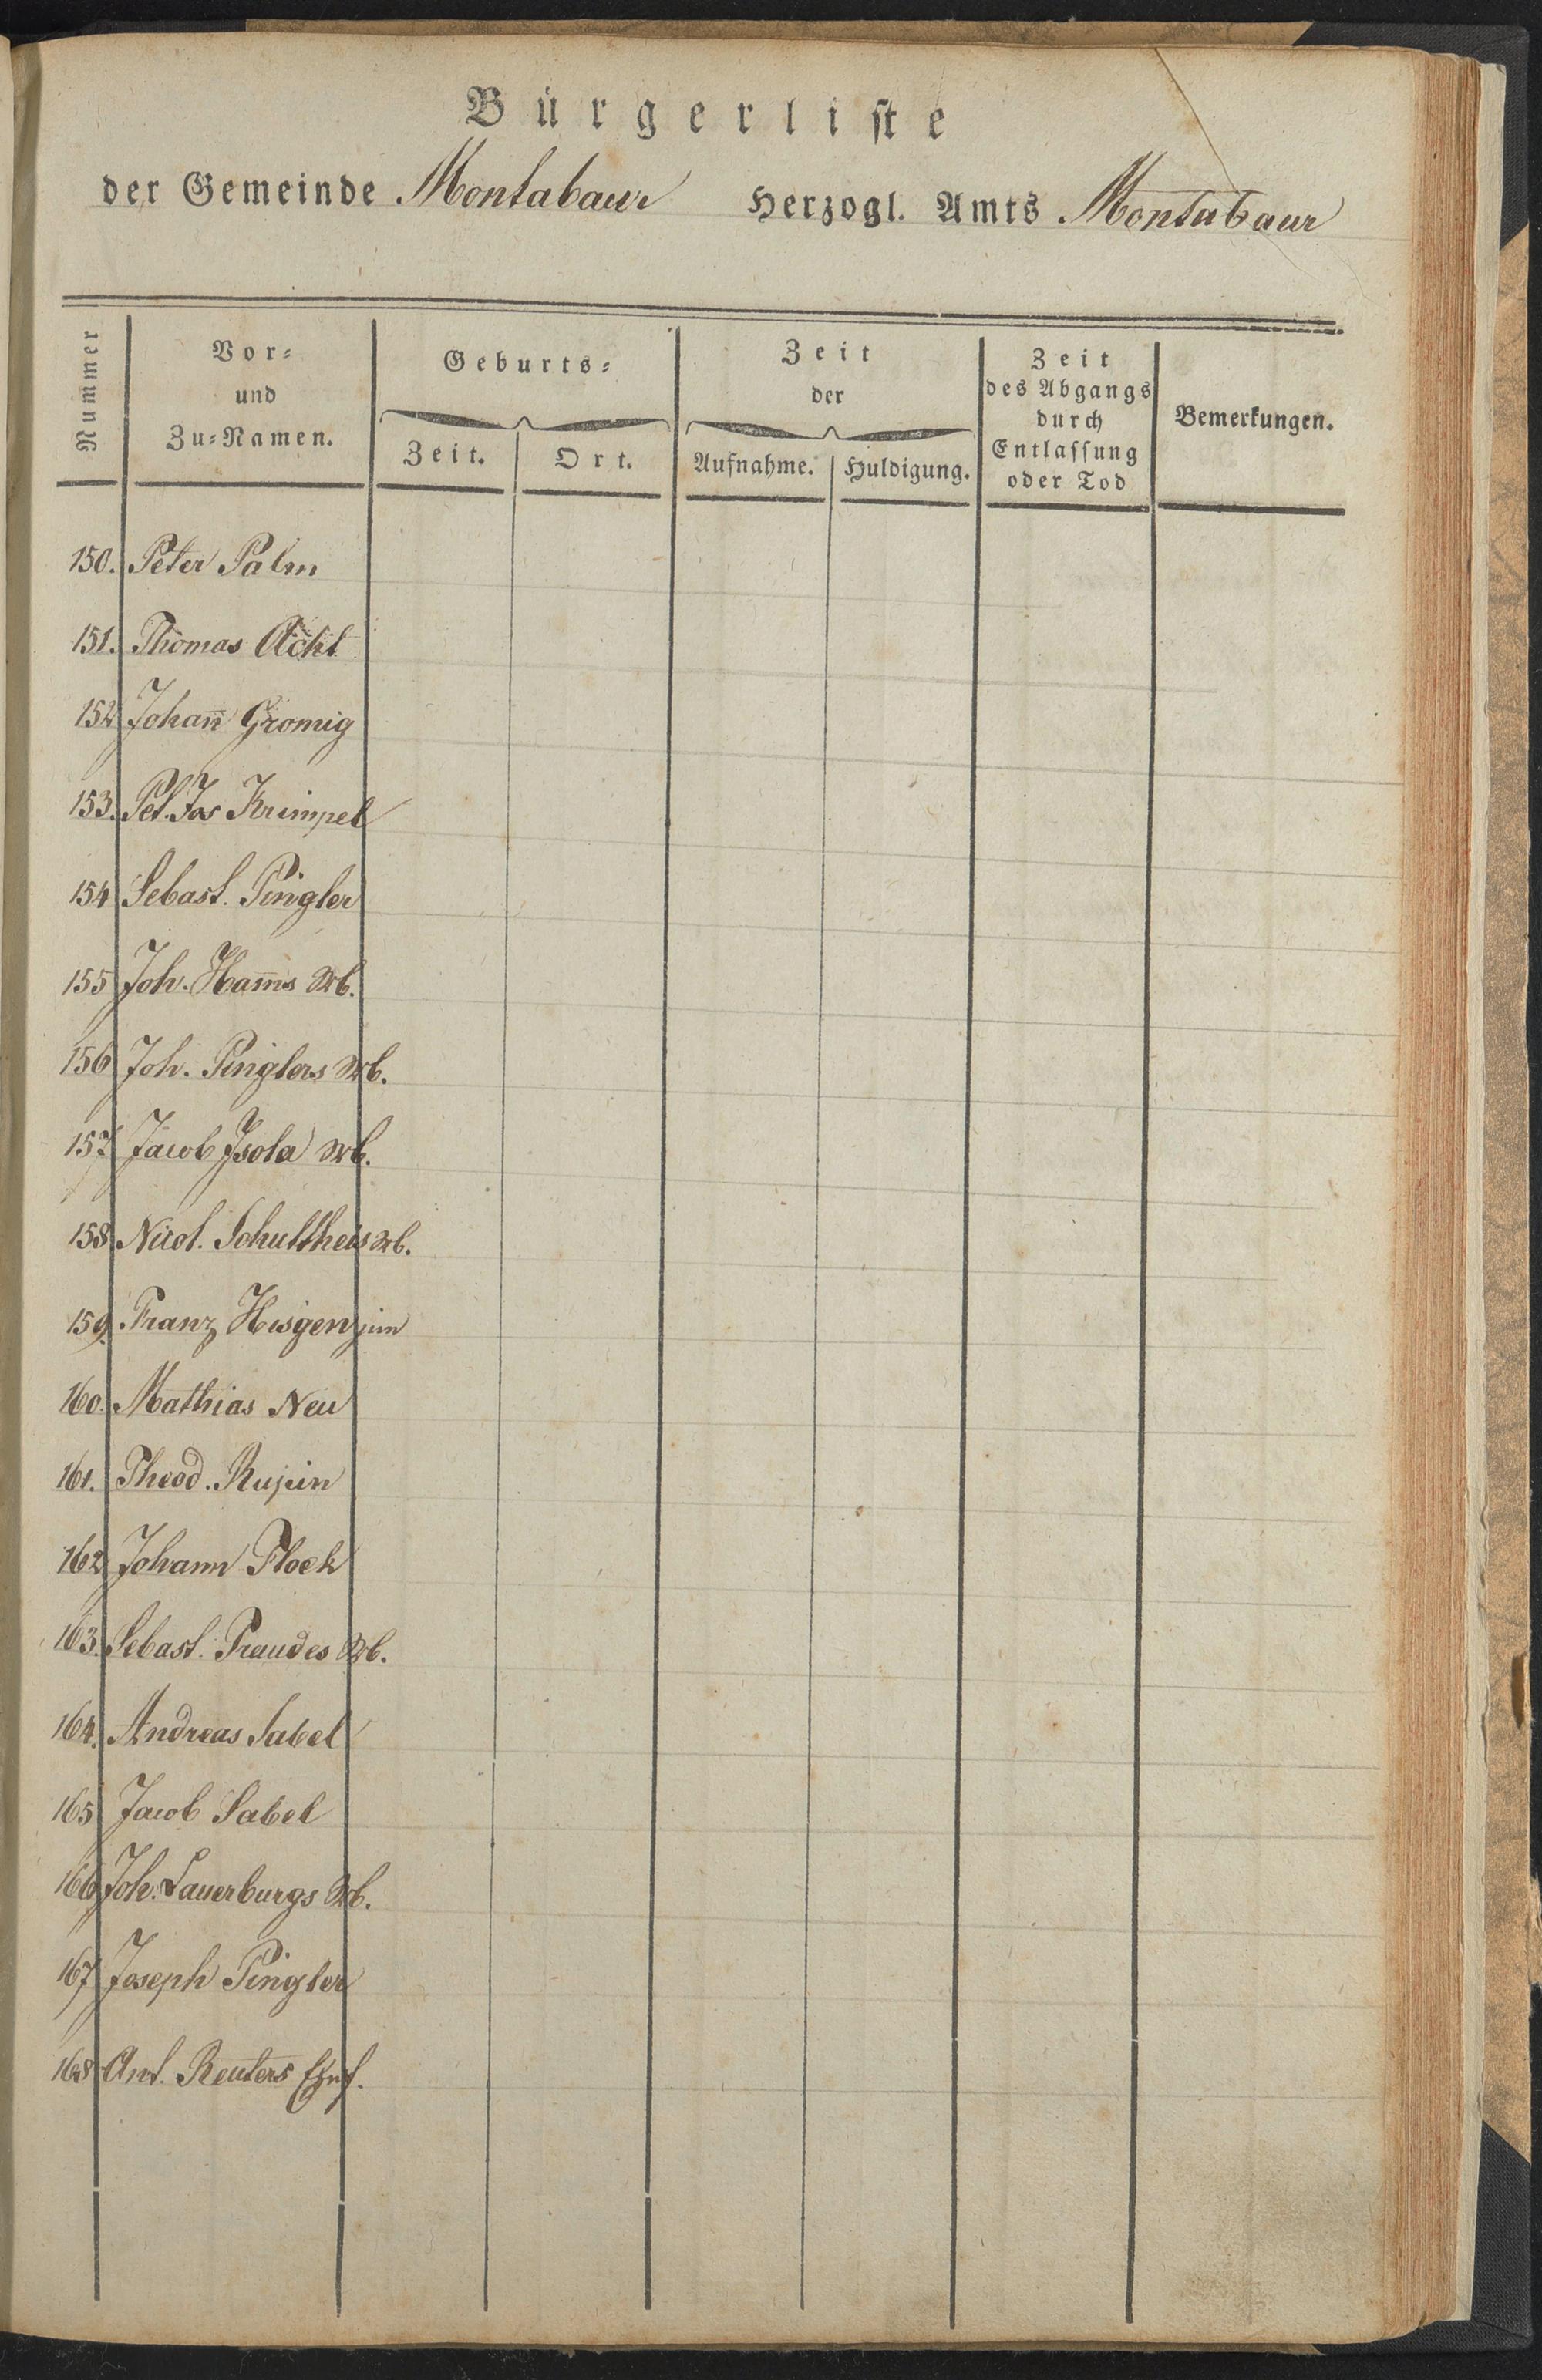 Bürgerliste
der Gemeinde Montabaur Herzogl. Amts Montabaur
Nummer
Vor-
und
Zu-Namen.
Geburts-
Zeit.
Ort.
Zeit
der
Aufnahme.
Huldigung.
Zeit
des Abgangs
durch
Entlassung
oder Tod
Bemerkungen.
150. Peter Palm
151. Thomas Acht
152 Johan̄ Gromig
153. Pet. Jos Krimpel
154 Sebast. Pingler
155 Joh. Ham̄s Wb.
156 Joh. Pinglers Wb.
157 Jacob Isola Wb.
158 Nicol. Schultheis Wb.
159. Franz Hisgen jun
160. Mathias Neu
161. Theod.
162 Johann Flock
163. Sebast. Praudes Wb.
164. Andreas Sabel
165 Jacob Sabel
166 Joh. Lauerburgs Wb.
167 Joseph Pingler
168 Ant. Reuters